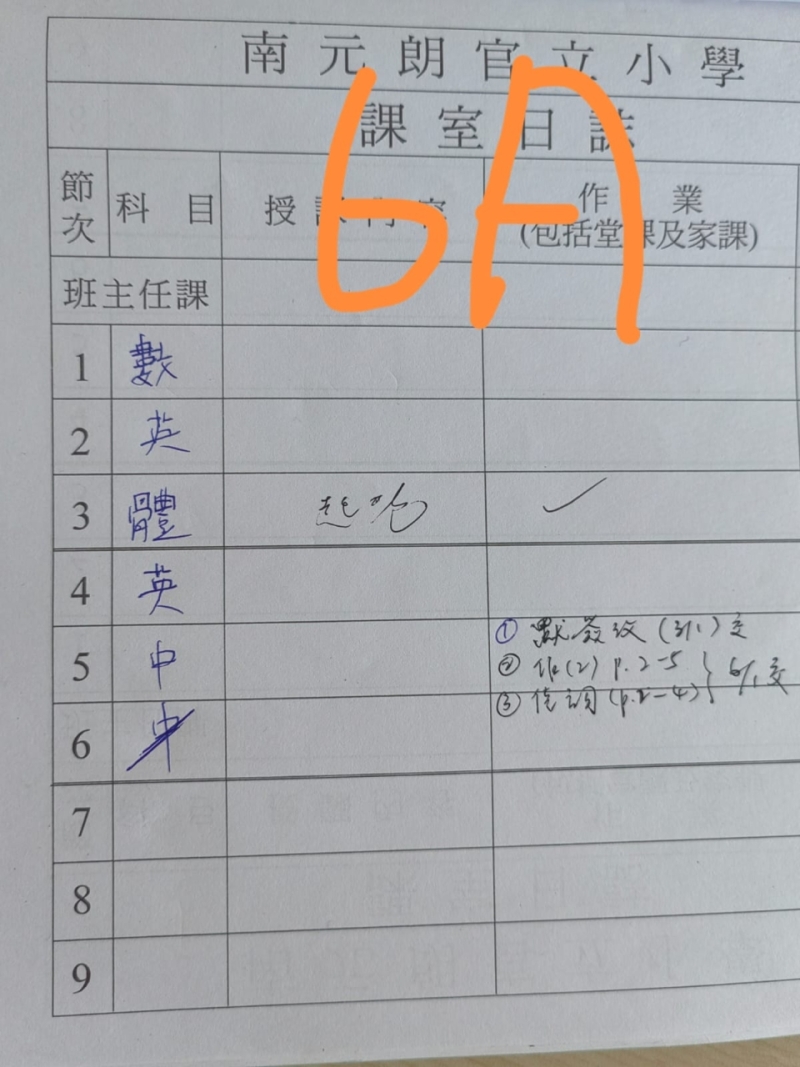 南元朗官立小學
課室日誌
6A
節次 科目 授課內容 作業
(包括堂課及家課)
班主任課
1 數
2 英
3 體 ✓
4 英
5 中
6 中
① 默 (31/1) 交
② 作(2) p.2-5 } 6/1 交
③ (p.2-4)
7
8
9